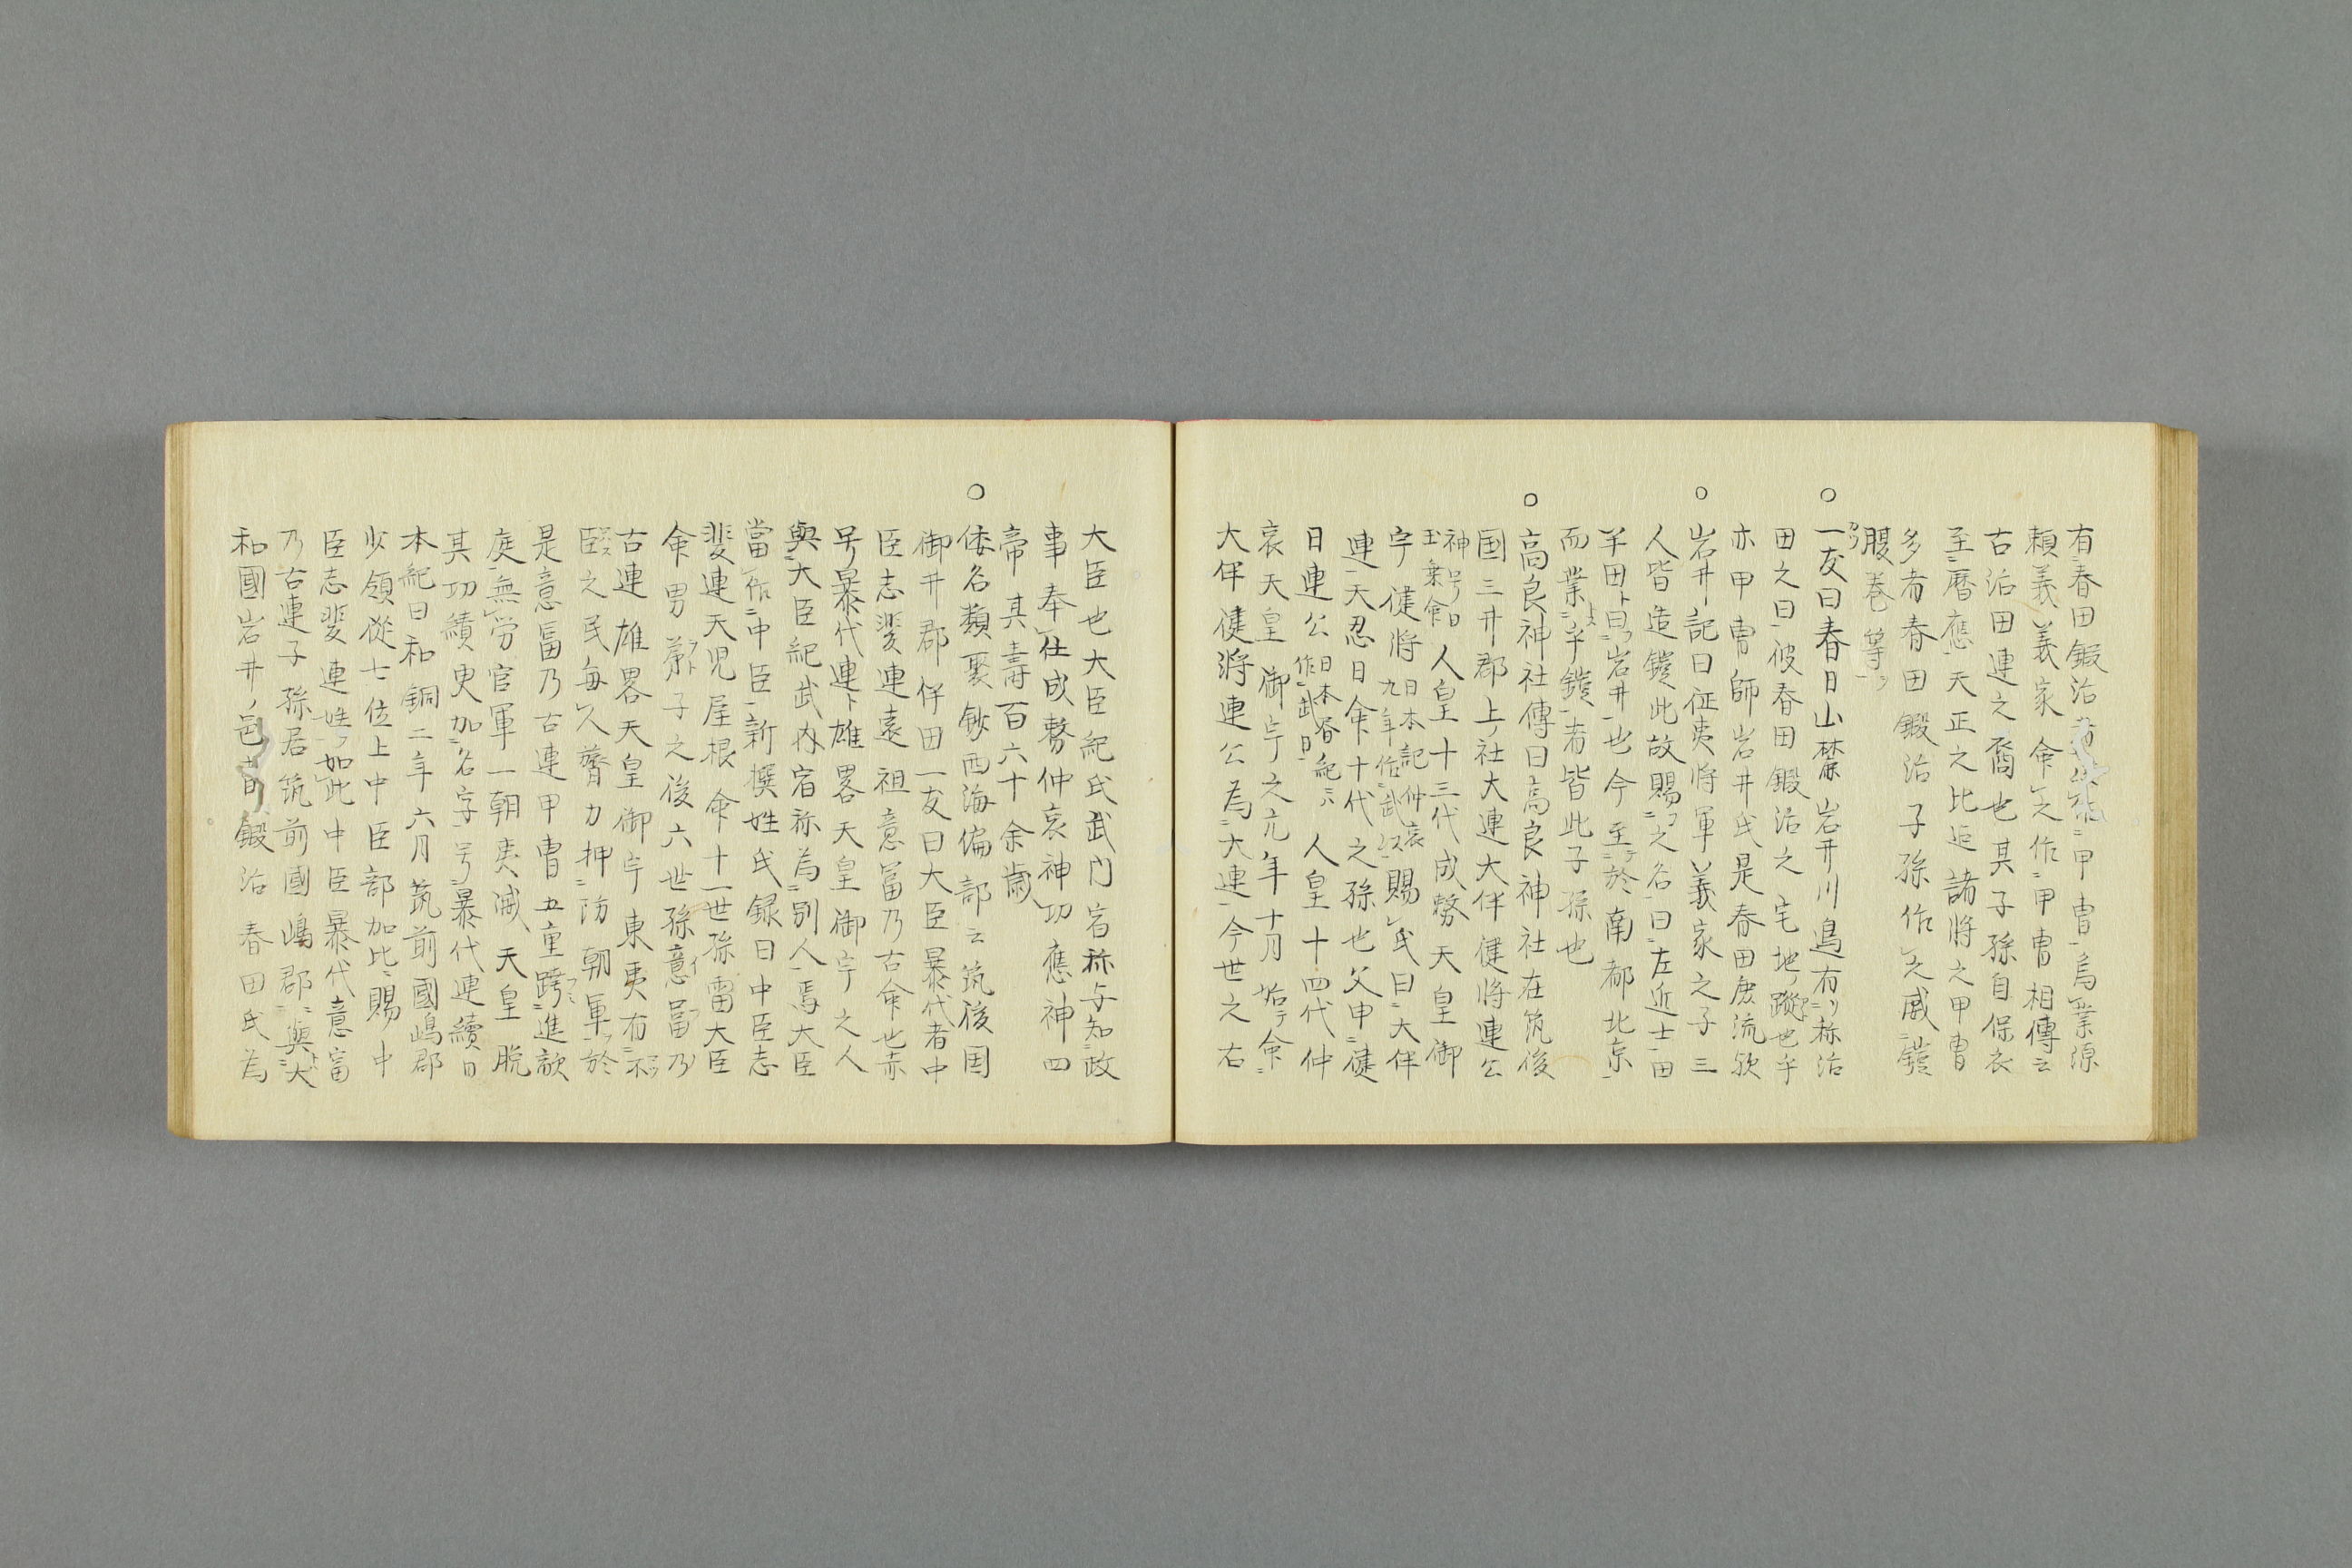 有春田鍛治 甲冑為業源
頼義義家命之作甲冑相傳云
古治田連之裔也其子孫自保衣
至暦應天正之比迄諸将之甲冑
多者春田鍛治子孫作之威鎧
腹巻等ヲ
○一友曰春日山麓岩井川鳥有称治
田之曰彼春田鍛治之宅地蹤也乎
亦甲冑師岩井氏是春田庶流欤
○岩井記曰征夷将軍義家之子三
人皆造鎧此故賜之名曰左近士田
羊田ト曰岩井也今至於南都北京
而業乎鎧者皆此子孫也
○高良神社傳曰高良神社在筑後
国三井郡上社大連大伴健将連公
神号曰玉垂命曰 人皇十三代成務天皇御
宇健将日本記仲哀九年作武以賜氏曰大伴
連天忍日命十代之孫也父申健
日連公日本昏紀云作武日 人皇十四代仲
哀天皇御宇之元年十月 命
大伴健将連公為大連今世之右
大臣也大臣紀氏武内宿祢与知政
事奉仕成務仲哀神功應神四
帝其壽百六十余歳
○倭名類聚鈔西海偏郡云筑後国
御井郡伴田一友曰大臣暴代者中
臣志斐連遠祖意富乃古命也赤
号暴代連ト雄畧天皇御宇之人
與大臣紀武内宿祢為別人焉大臣
當作中臣新撰姓氏録曰中臣志
斐連天児屋根命十一世孫雷大臣
命男弟子之後六世孫意富乃
古連雄畧天皇御宇東夷有不
臣之民毎人膂力押防朝軍於
是意富乃古連甲冑五重跨進敵
庭無労官軍一朝夷滅天皇脱
其功績更加名字号暴代連續日
本紀曰和銅二年六月筑前國嶋郡
少領從七位上中臣部加比賜中
臣志斐連姓如此中臣暴代意富
乃古連子孫居筑前國嶋郡與大
和國岩井邑 鍛治春田氏為